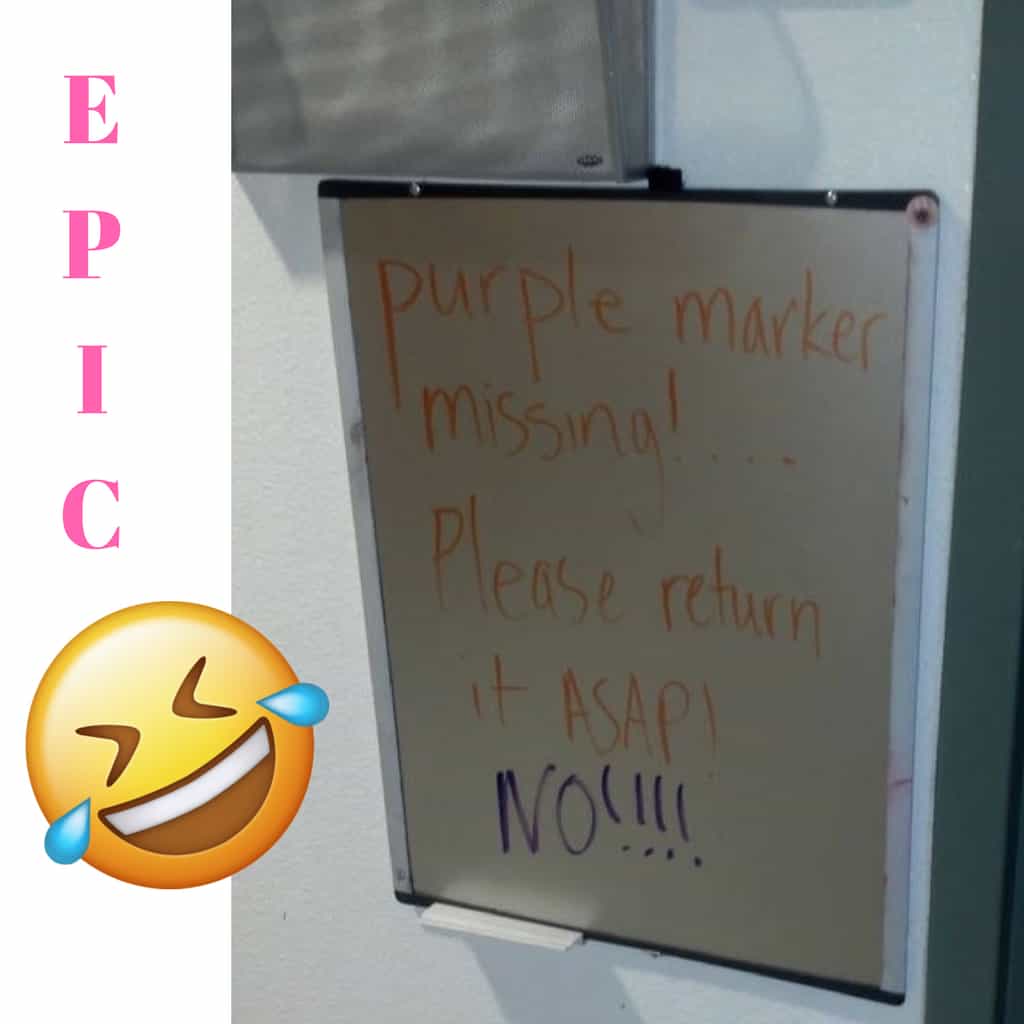 E
P
I
C
purple marker
missing!....
Please return
it ASAP!
NO!!!!